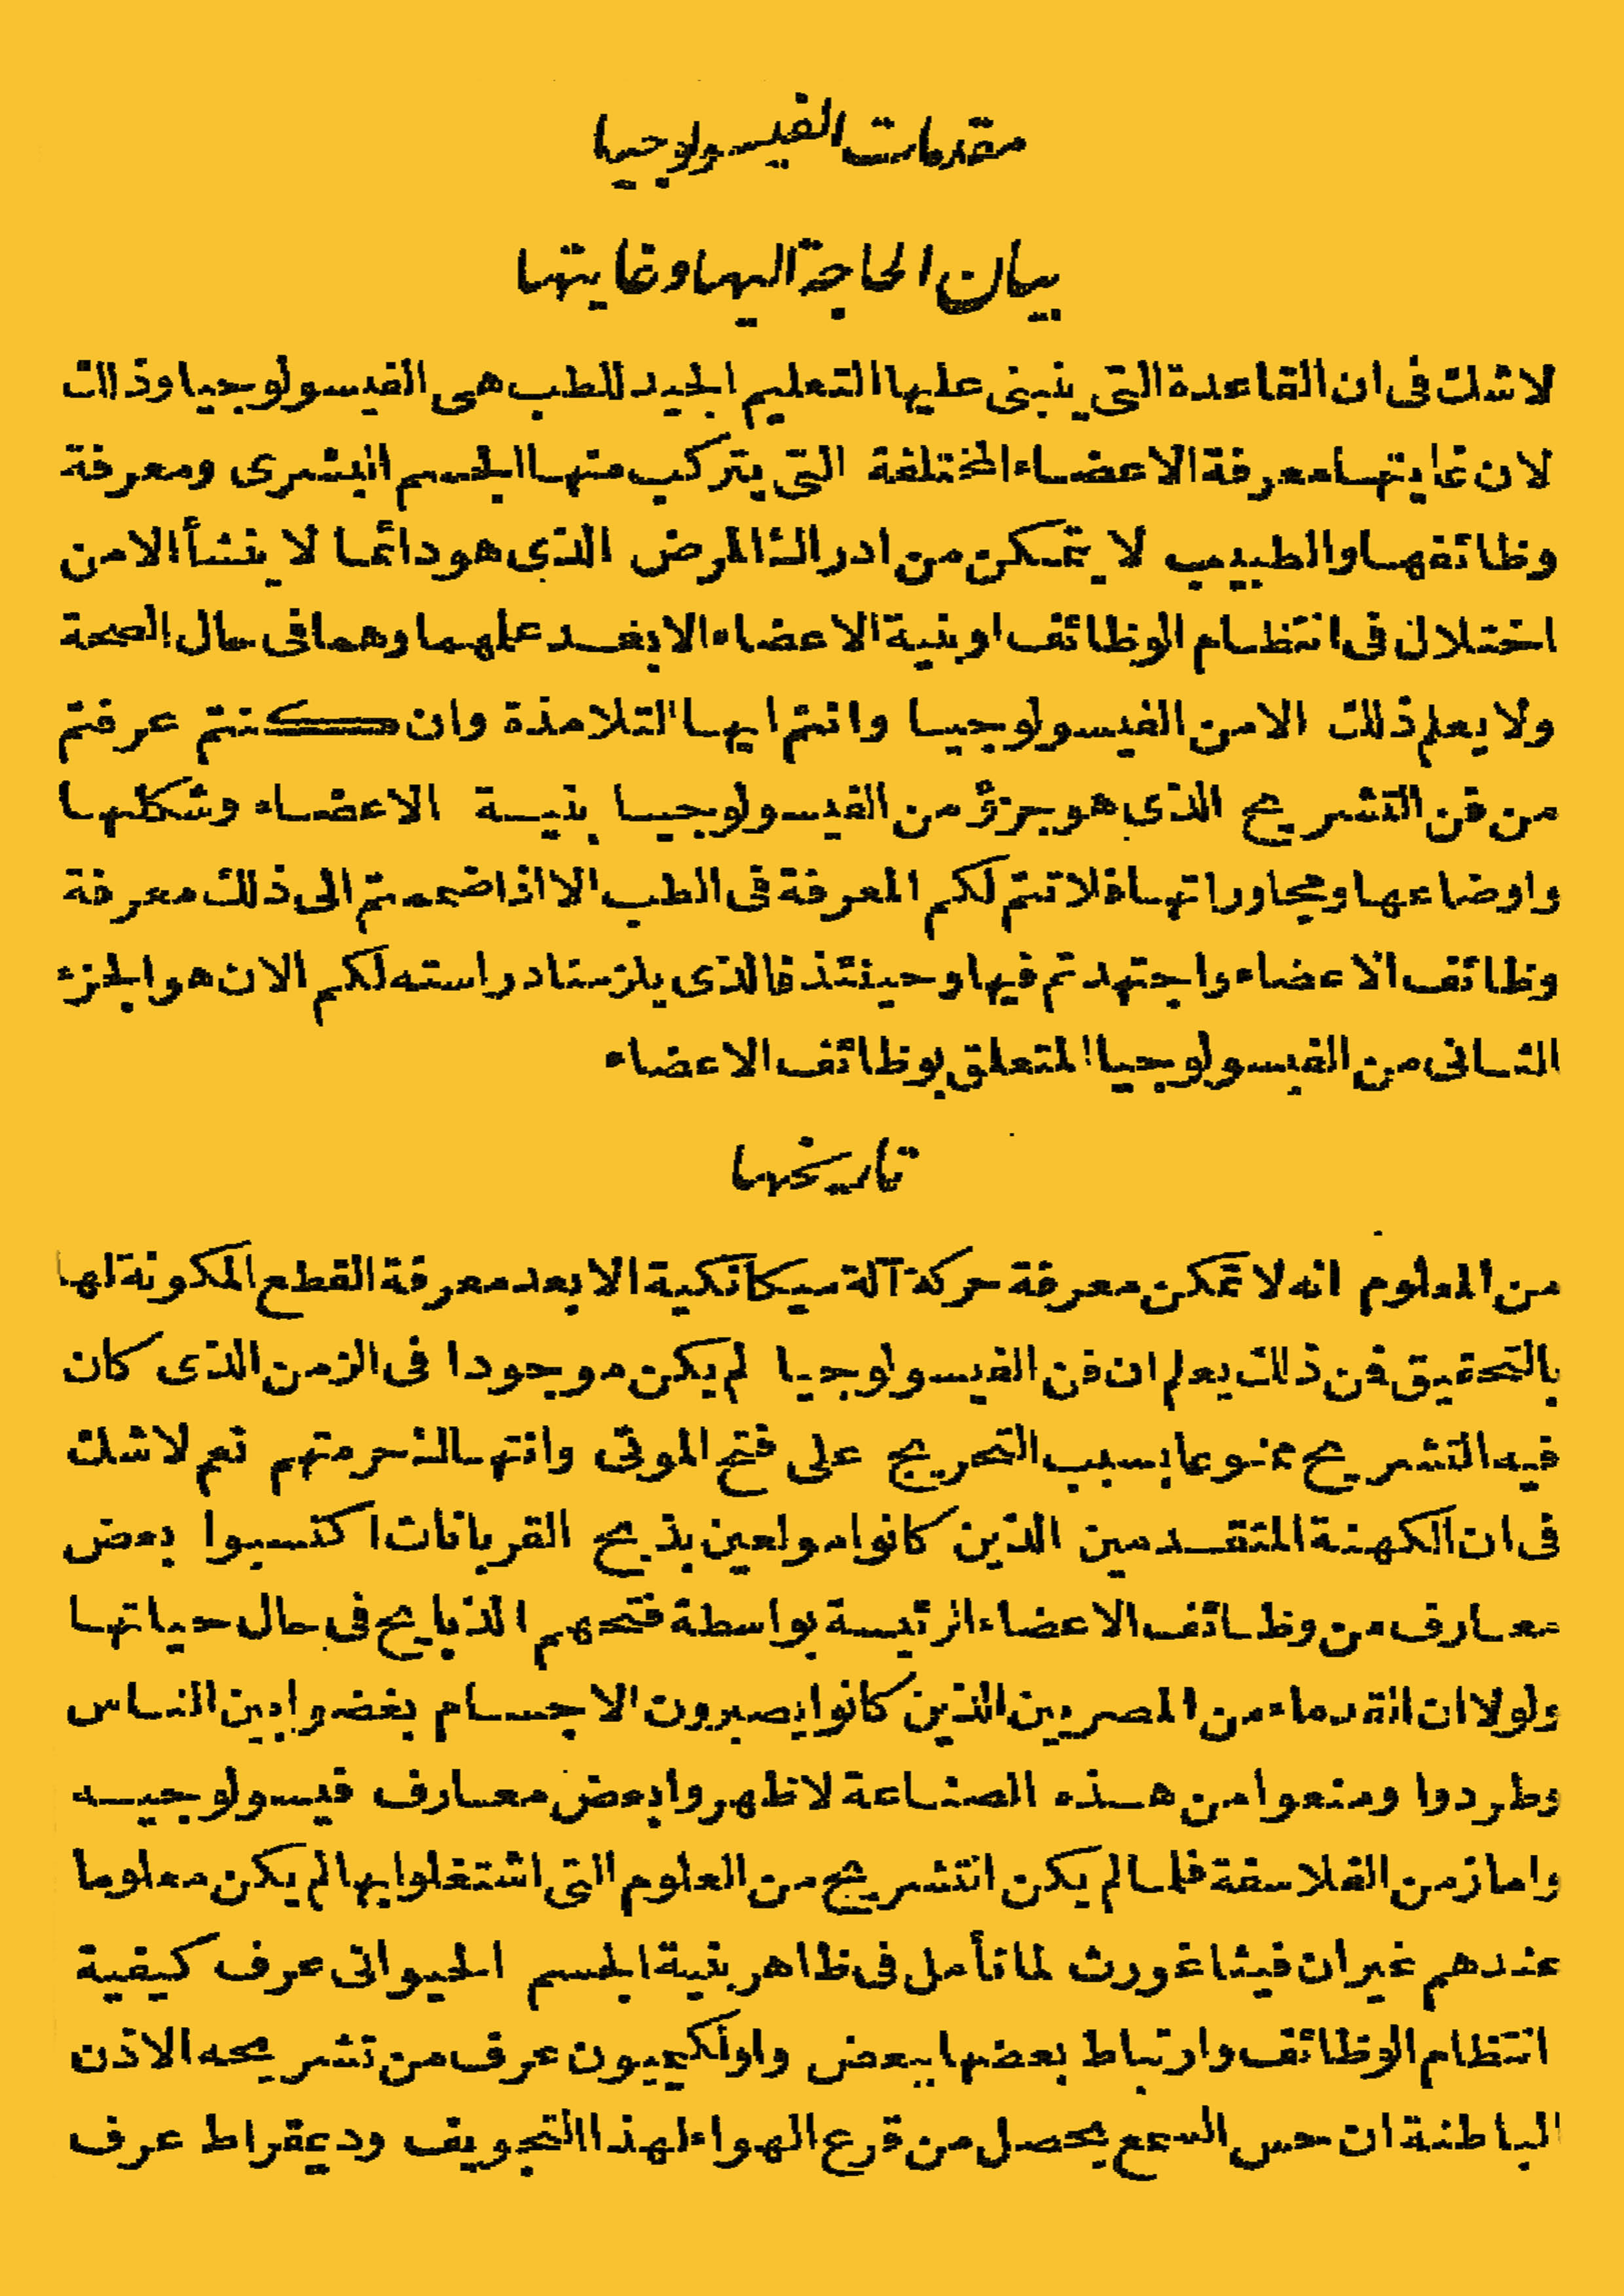 مقدمات الفيسولوجيا
بيان الحاجة اليها وغايتها
لاشك فى ان القاعدة التى ينبنى عليها التعليم الجيد للطب هى الفيسولوجيا وذالك
لان غايتها معرفة الاعضاء المختلفة التى يتركب منها الجسم البشرى ومعرفة
وظائفها والطبيب لا يتمكن من ادراك المرض الذى هو دائما لا ينشأ الا من
اختلال فى انتظام الوظائف او بنية الاعضاء الا بعد علمهما وهما فى حال الصحة
ولا يعلم ذلك الا من الفيسولوجيا وانتم ايها التلامذة وان كنتم عرفتم
من فن التشريح الذى هو جزؤ من الفيسولوجيا بنية الاعضاء وشكلها
واوضاعها ومجاوراتها فلا تتم لكم المعرفة فى الطب الا اذا ضممتم الى ذلك معرفة
وظائف الاعضاء واجتهدتم فيها وحينئذ فالذى يلزمنا دراسته لكم الان هو الجزء
الثانى من الفيسولوجيا المتعلق بوظائف الاعضاء
تاريخها
من المعلوم انه لا تمكن معرفة حركة آلة ميكانكية الا بعد معرفة القطع المكونة لها
بالتحقيق فمن ذلك يعلم ان فن الفيسولوجيا لم يكن موجودا فى الزمن الذى كان
فيه التشريح ممنوعا بسبب التحريج على فتح الموتى وانتهاك حرمتهم نعم لاشك
فى ان الكهنة المتقدمين الذين كانوا مولعين بذبح القربانات اكتسبوا بعض
معارف من وظائف الاعضاء الرئيسة بواسطة فتحهم الذبايح فى حال حياتها
ولولا ان القدماء من المصريين الذين كانوا يصبرون الاجسام بغضوا بين الناس
وطردوا ومنعوا من هذه الصناعة لاظهروا بعض معارف فيسولوجيه
واما زمن الفلاسفة فلما لم يكن التشريح من العلوم التى اشتغلوا بها لم يكن معلوما
عندهم غير ان فيثاغورث لما تأمل فى ظاهر بنية الجسم الحيوانى عرف كيفية
انتظام الوظائف وارتباط بعضها ببعض واولكميون عرف من تشريحه الاذن
الباطنة ان حس السمع يحصل من قرع الهواء لهذا التجويف ودعقراط عرف